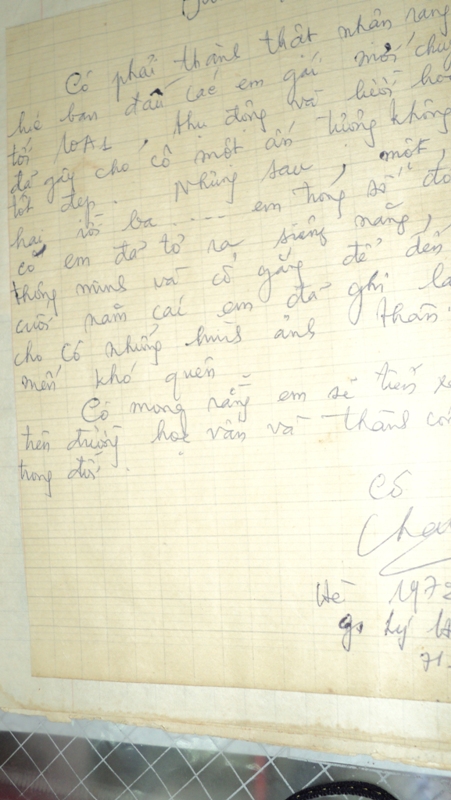 Có phải thành thật nhân rang
lúc ban đầu các em gái mới chuy
tới 10A1, thụ động và lười họ
đã gây cho cô một ấn tượng không
tốt đẹp. Nhưng sau, một,
hai rồi ba ..... em trong số đó
có em đã tỏ ra siêng năng,
thông minh và cố gắng để đến
cuối năm các em đã ghi lạ
cho cô những hình ảnh thân
mến khó quên.
Cô mong rằng em sẽ tiến x
trên đường học vấn và thành cô
trong đời.
Cô
Cha
Hè 197
gs Lý H
71